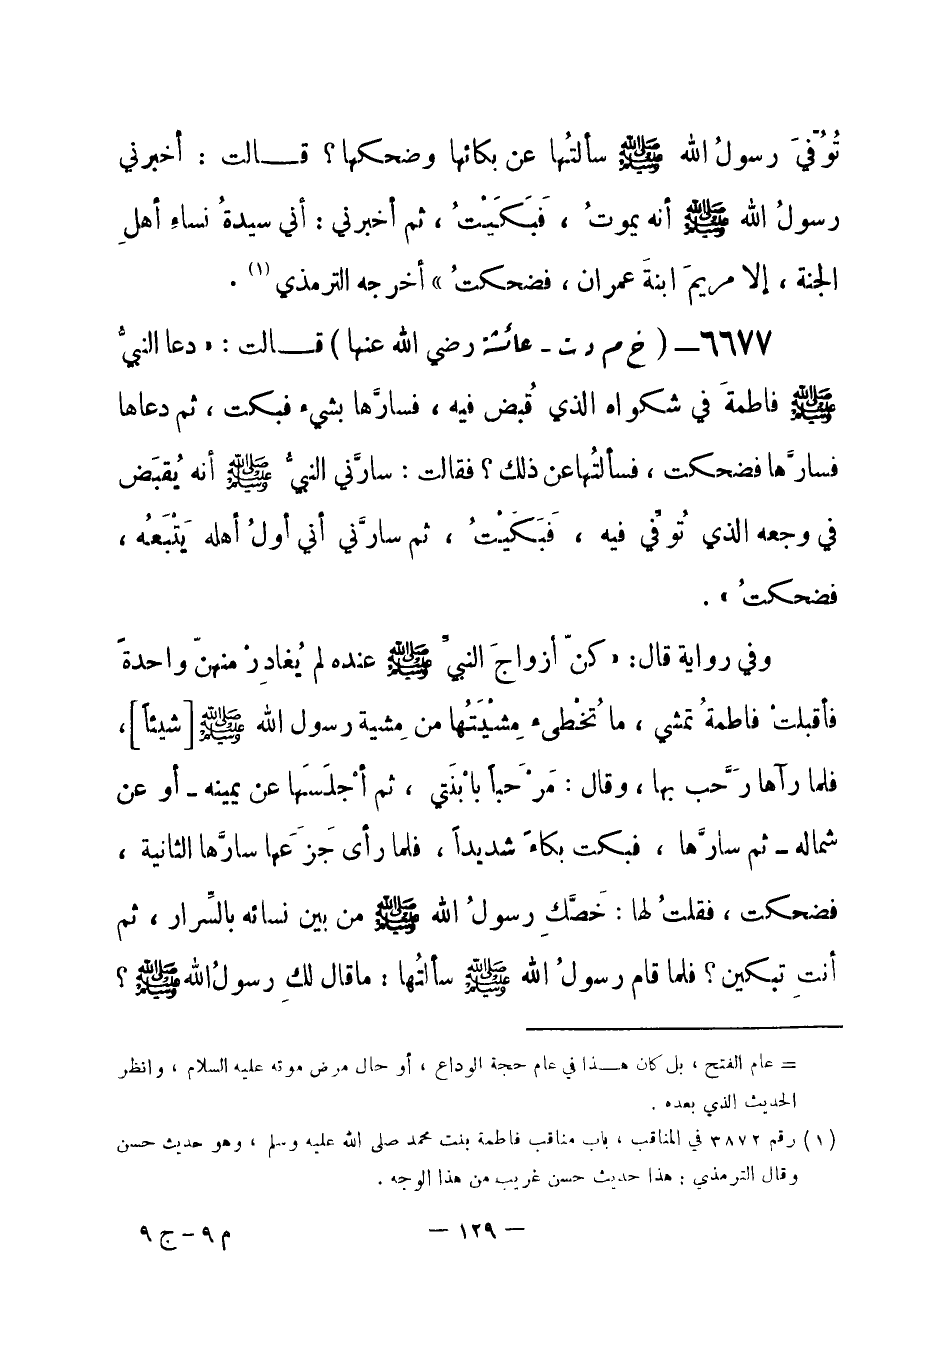 تُوُفِّيَ رسولُ الله ﷺ سألتُها عن بكائها وضحكها؟ قالت : أخبرني
رسولُ الله ﷺ أنه يموتُ ، فَبَكَيْتُ ، ثم أخبرني : أني سيدةُ نساءِ أهلِ
الجنة ، إلا مريمَ ابنةَ عمران ، فضحكتُ » أخرجه الترمذي (١) .
٦٦٧٧ـ ( خ م د ت ـ عائشة رضي الله عنها ) قالت : « دعا النبيُّ
ﷺ فاطمةَ في شكواه الذي قُبض فيه ، فسارَّها بشيء فبكت ، ثم دعاها
فسارَّها فضحكت ، فسألتُها عن ذلك ؟ فقالت : سارَّني النبيُّ ﷺ أنه يُقبَض
في وجعه الذي تُوفِّي فيه ، فَبَكَيْتُ ، ثم سارَّني أني أولُ أهله يَتْبَعُه ،
فضحكتُ » .
وفي رواية قال: « كنّ أزواجَ النبيِّ ﷺ عنده لم يُغادِرْ منهنّ واحدةً
فأقبلتْ فاطمةُ تمشي ، ما تُخْطىء مِشْيَتُها من مِشية رسول الله ﷺ [شيئاً] ،
فلما رآها رَحَّب بها ، وقال : مَرْحباً بابْنَتي ، ثم أجْلَسَها عن يمينه ـ أو عن
شماله ـ ثم سارَّها ، فبكت بكاءً شديداً ، فلما رأى جَزَعَها سارَّها الثانية ،
فضحكت ، فقلتُ لها : خَصَّكِ رسولُ الله ﷺ من بين نسائه بالسِّرار ، ثم
أنتِ تبكين ؟ فلما قام رسولُ الله ﷺ سألتُها : ماقال لكِ رسولُ الله ﷺ ؟
= عام الفتح ، بل كان هذا في عام حجة الوداع ، أو حال مرض موته عليه السلام ، وانظر
الحديث الذي بعده .
(١) رقم ٣٨٧٢ في المناقب ، باب مناقب فاطمة بنت محمد صلى الله عليه وسلم ، وهو حديث حسن
وقال الترمذي : هذا حديث حسن غريب من هذا الوجه .
— ١٢٩ —
م ٩ – ج ٩